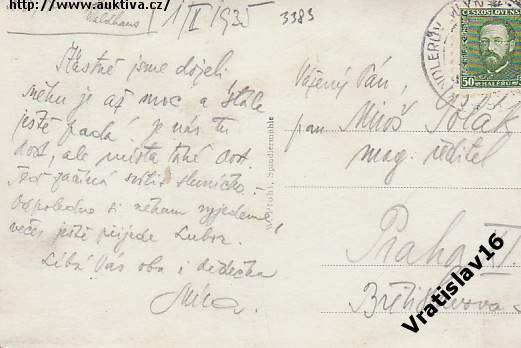 http://www.auktiva.cz/
Waldhaus
1/I 1935
3383
Šťastně jsme dojeli
sněhu je až moc a stále
ještě padá! je nás tu
dost, ale místa také dost.
Teď začíná svítit sluníčko –
Odpoledne si někam vyjedeme,
večer ještě přijede Lubor.
Líbá Vás oba i dědečka
Míla
Prohl, Spindlermühle
ČESKOSLOVENSKO
50 HALÉŘŮ
Vážený Pán,
pan Miloš Polák
mag. ředitel
Praha VI
Břetislavova
Vratislav16